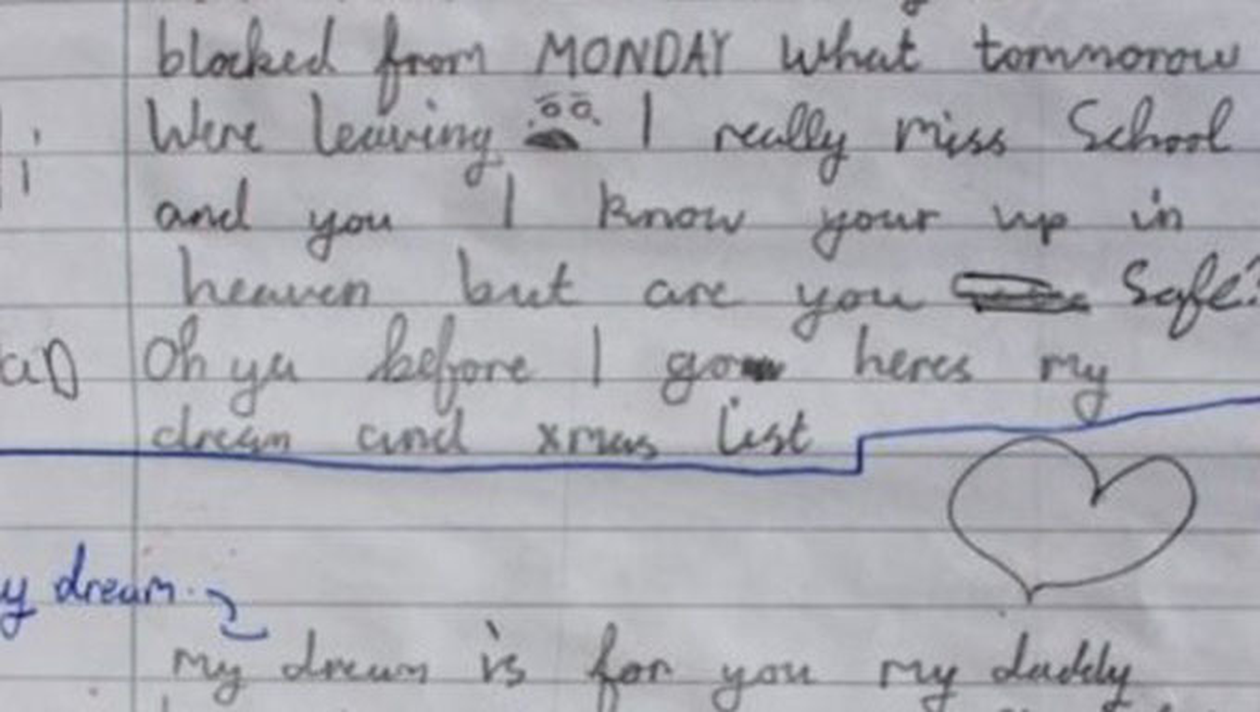 blocked from MONDAY what tommorow
Were leaving I really miss School
and you I know your up in
heaven but are you Safe?
Oh ya before I go heres my
dream and xmas list
y dream
My dream is for you my daddy